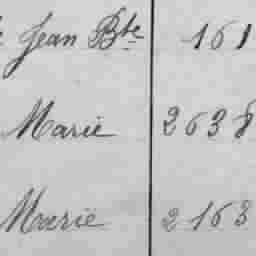 Jean Bte 161
Marie 2638
Marie 2163